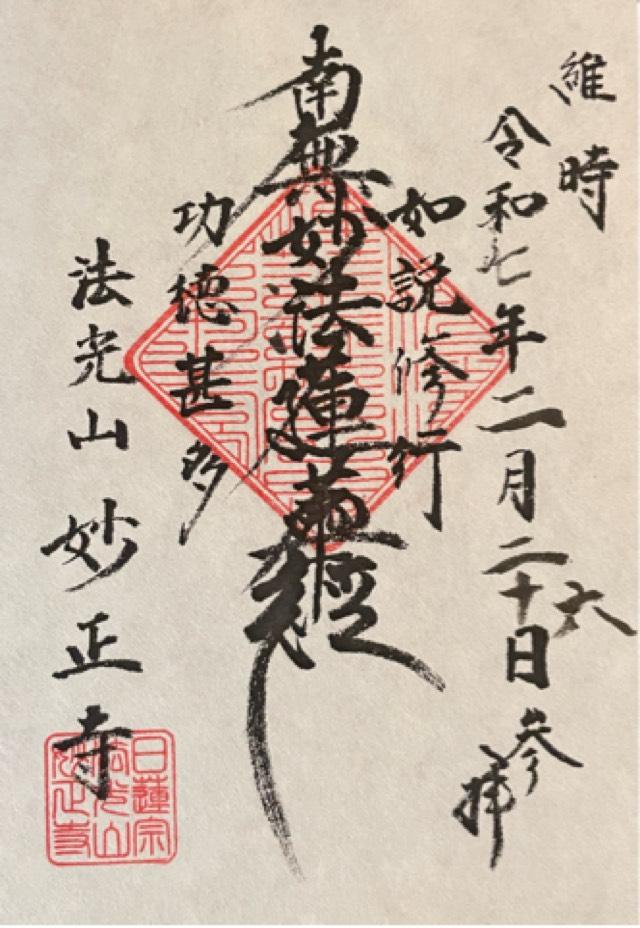 維時
令和七年二月二十六日 参拝
如説修行
南無妙法蓮華経
功徳甚多
法光山 妙正寺
日蓮宗
法光山
妙正寺